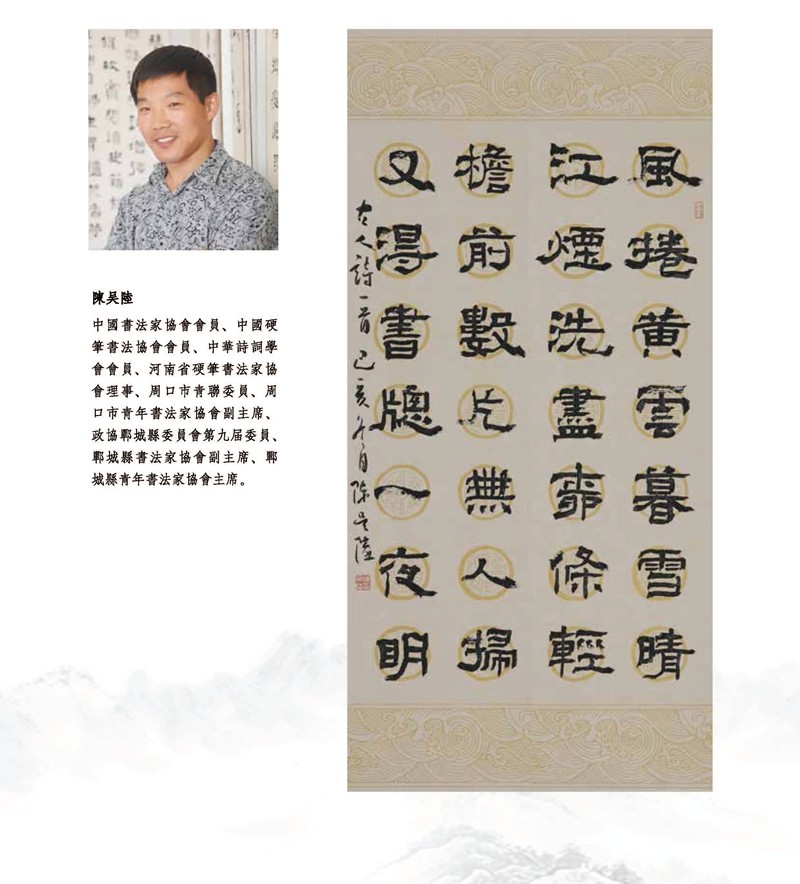 陳吴陸
中國書法家協會會員、中國硬
筆書法協會會員、中華詩詞學
會會員、河南省硬筆書法家協
會理事、周口市青聯委員、周
口市青年書法家協會副主席、
政協鄲城縣委員會第九届委員、
鄲城縣書法家協會副主席、鄲
城縣青年書法家協會主席。
風捲黄雲暮雪晴
江煙洗盡桺條輕
檐前數片無人掃
又得書牕一夜明
古人詩一首己亥冬月陳吴陸